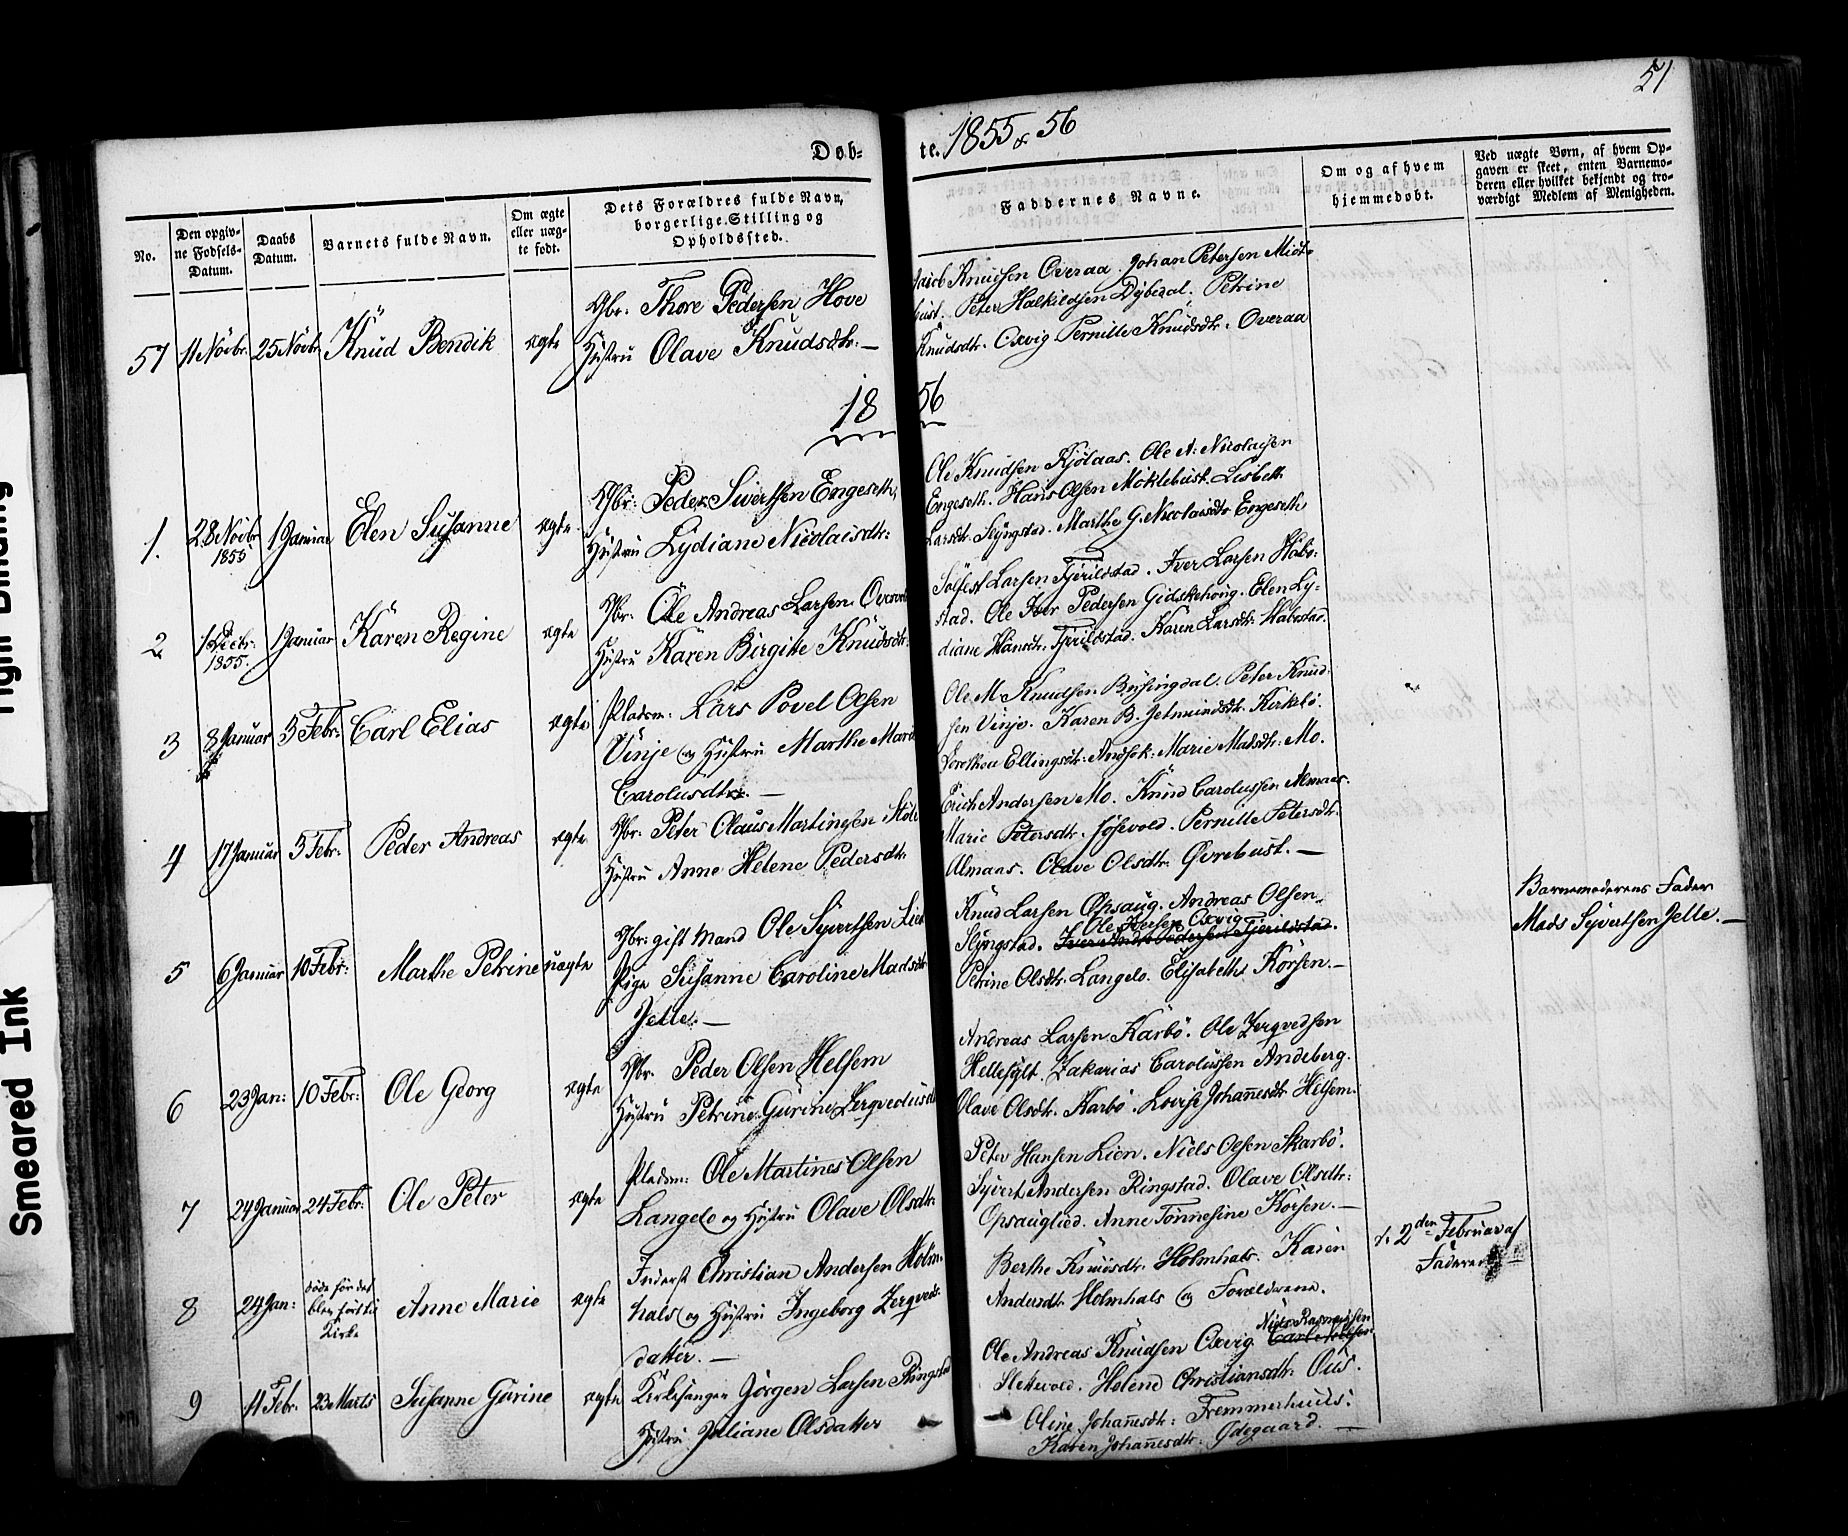 51
Døb-
te. 1855 & 56
No.
Den opgiv-
ne Fødsels-
Datum.
Daabs
Datum.
Barnets fulde Navn.
Om ægte
eller uæg-
te født.
Dets Forældres fulde Navn,
borgerlige Stilling og
Opholdssted.
Faddernes Navne.
Om og af hvem
hjemmedøbt.
Ved uægte Børn, af hvem Op-
gaven er skeet, enten Barnemo-
deren eller hvilket bekjendt og tro-
værdigt Medlem af Menigheden.
57 11 Novbr 25 Novbr Knud Bendik ægte
Gbr: Thore Pedersen Hove
Hustru Olave Knudsdtr. —
Jacob Knudsen Overaa. Johan Petersen Midt-
bust. Peter Halkildsen Dybedal. Petrine
Knudsdtr. Oxvig Pernille Knudsdtr. Overaa
1856
1. 28 Novbr 1855 1 Januar Elen Susanne ægte
Gbr: Peder Sivertsen Engeseth,
Hustru Lydiane Nicolaisdtr:
Ole Knudsen Kjølaas. Ole A: Nicolaisen
Engeseth. Hans Olsen Möklebust. Lisbeth
Larsdtr. Slyngstad. Marthe G. Nicolaisdtr Engeseth
2 1 Decbr: 1855. 1 Januar Karen Regine ægte
Gbr. Ole Andreas Larsen
Hustru Karen Birgitte Knudsdtr.
Solfest Larsen Fjerildstad. Iver Larsen Habo-
stad. Ole Iver Pedersen Gidskehoug. Elen Ly-
diane Hansdtr. Fjerildstad. Karen Larsdtr. Habostad.
3 8 Januar 3 Febr: Carl Elias ægte
Pladsm: Lars Povel Olsen
Vinje og Hustru Marthe Marie
Carolusdtr. —
Ole M Knudsen Brusingdal. Peter Knud-
sen Vinje. Karen B. Jetmundsdtr. Kirkebø.
Dorothea Ellingsdtr. Marie Madsdtr. Mo.
4 17 Januar 3 Febr: Peder Andreas ægte
Gbr: Peter Olaus Martinusen
Hustru Anne Helene Pedersdtr.
Erich Andersen Mo. Knud Carolussen Almaas.
Marie Petersdtr. Pernille Petersdtr.
Almaas. Olave Olsdtr. Øvrebust. —
5 6 Januar 10 Febr: Marthe Petrine uægte
Gbr: gift Mand Ole Syvertsen Lien
Pige Susanne Caroline Madsdtr
Jelle. —
Knud Larsen Opsaug. Andreas Olsen
Ole Iversen Oxvig
Slyngstad. Iver Andr. Pedersen Fjerildstad.
Petrine Olsdtr. Langelo. Elisabeth Korsen. —
Barnemoderens Fader
Mads Syvertsen Jelle. —
6 23 Jan: 10 Febr: Ole Georg ægte
Gbr. Peder Olsen Helsem
Hustru Petrine Gurine
Andreas Larsen Karbø. Ole Zerqvedsen
Hellesylt. Zakarias Carolussen Andeberg.
Olave Olsdtr. Karbø. Lovise Johannesdtr Helsem.
7 24 Januar 24 Febr: Ole Peter ægte
Pladsm: Ole Martines Olsen
Langelo og Hustru Olave Olsdtr.
Peter Hansen Lien. Niels Olsen Skarbø.
Syvert Andersen Ringstad. Olave Olsdtr.
Opsauglied. Anne Tønnesine Korsen. —
8 24 Jan: døde før det
blev ført til
Kirke Anne Marie ægte
Inderst Christian Andersen Holm-
hals og Hustru Ingeborg Zerqveds-
datter. —
Berthe Knudsdtr. Holmhals. Karen
Andersdtr Holmhals og Forældrene.
d. 2den Februar af
Faderen
9 4 Febr. 23 Marts Susanne Gurine ægte
Kirkesanger Jørgen Larsen Ringstad
Hustru Juliane Olsdatter
Niels Rasmussen
Ole Andreas Knudsen Oxvig.
Slettevold. Helene Christiansdtr. Aus.
Oline Johannesdtr: Fremmerhuus.
Karen Johannesdtr. Ødegaard. —
Tight Binding
Smeared Ink